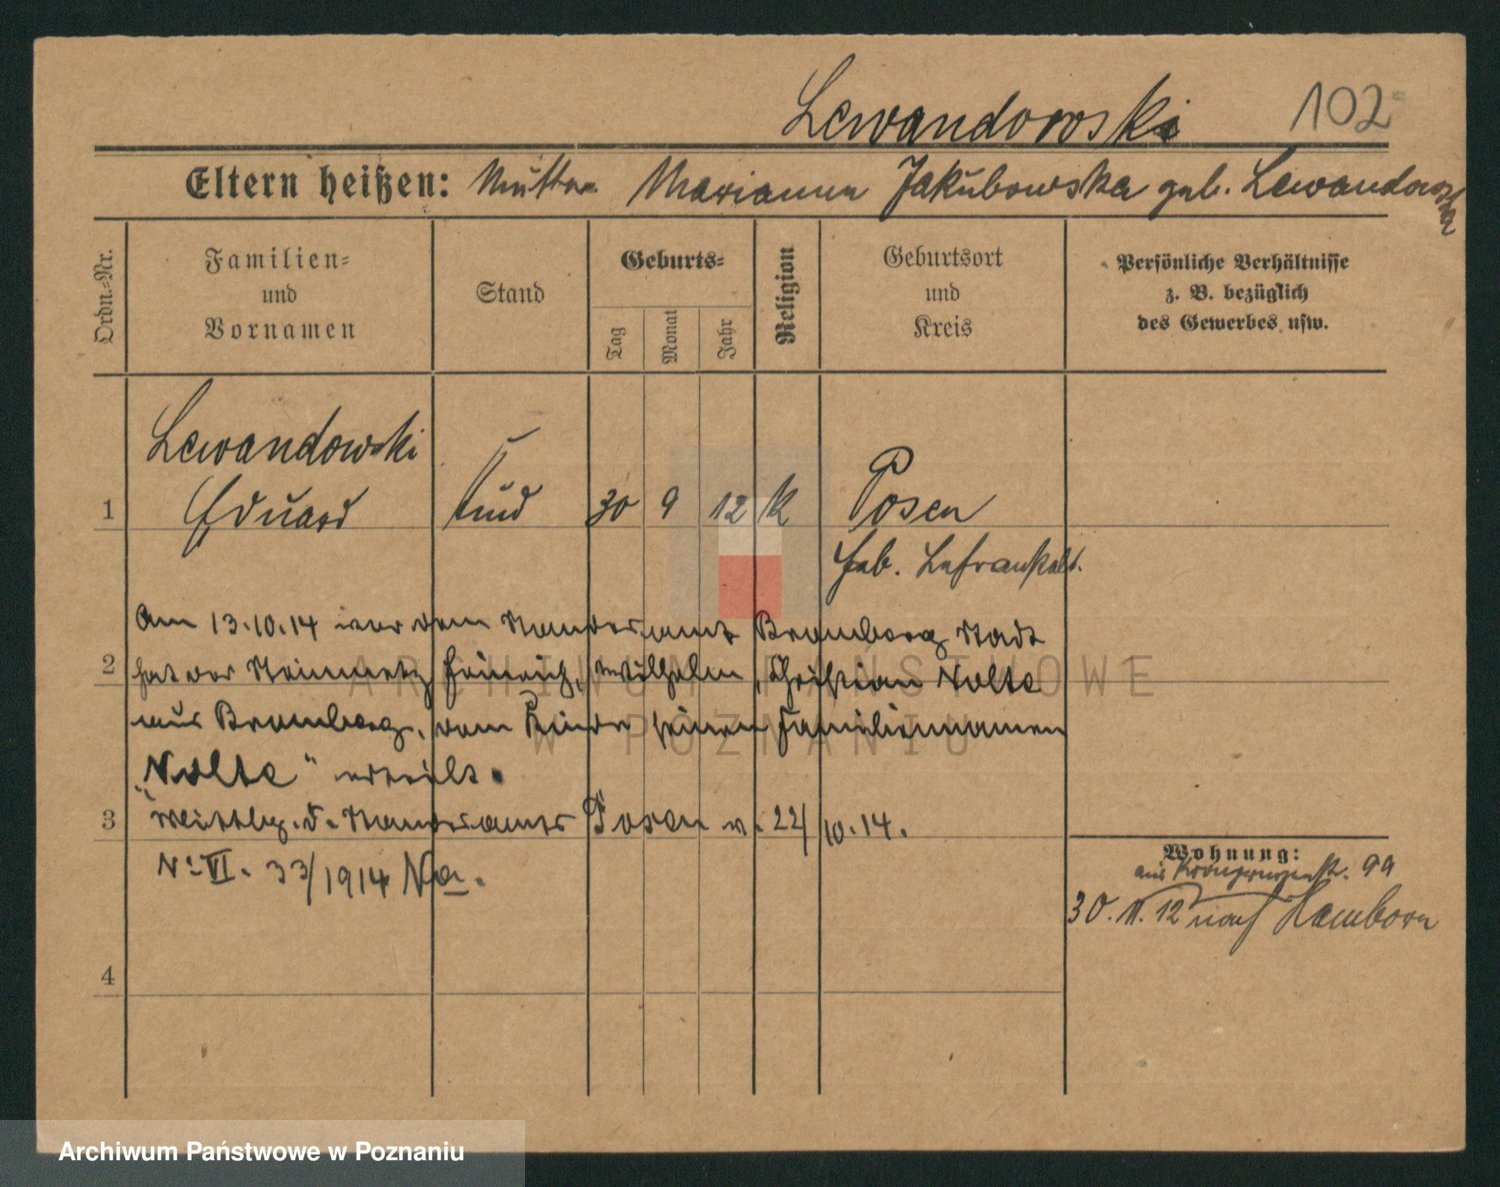 Lewandowski 102
Eltern heißen: Mutter Marianna Jakubowska geb. Lewandowska
Ordn.-Nr.
Familien-
und
Vornamen
Stand
Geburts-
Tag
Monat
Jahr
Religion
Geburtsort
und
Kreis
Persönliche Verhältnisse
z. B. bezüglich
des Gewerbes usw.
Lewandowski
1 Eduard Kind 30 9 12 k Posen
Heb. Lehranstalt.
Am 13.10.14 vor dem Standesamt Bromberg Stadt
2 hat der Steinmetz Heinrich, Wilhelm, Christian Nolte
aus Bromberg, dem Kinde seinen Familiennamen
„Nolte“ erteilt.
3 Mittlg. d. Standesamts Posen v. 22/10.14.
No VI. 33/1914 Na.
Wohnung:
aus Kronprinzenstr. 99
30. 11. 12 nach Hamborn
4
ARCHIWUM PAŃSTWOWE
W POZNANIU
Archiwum Państwowe w Poznaniu